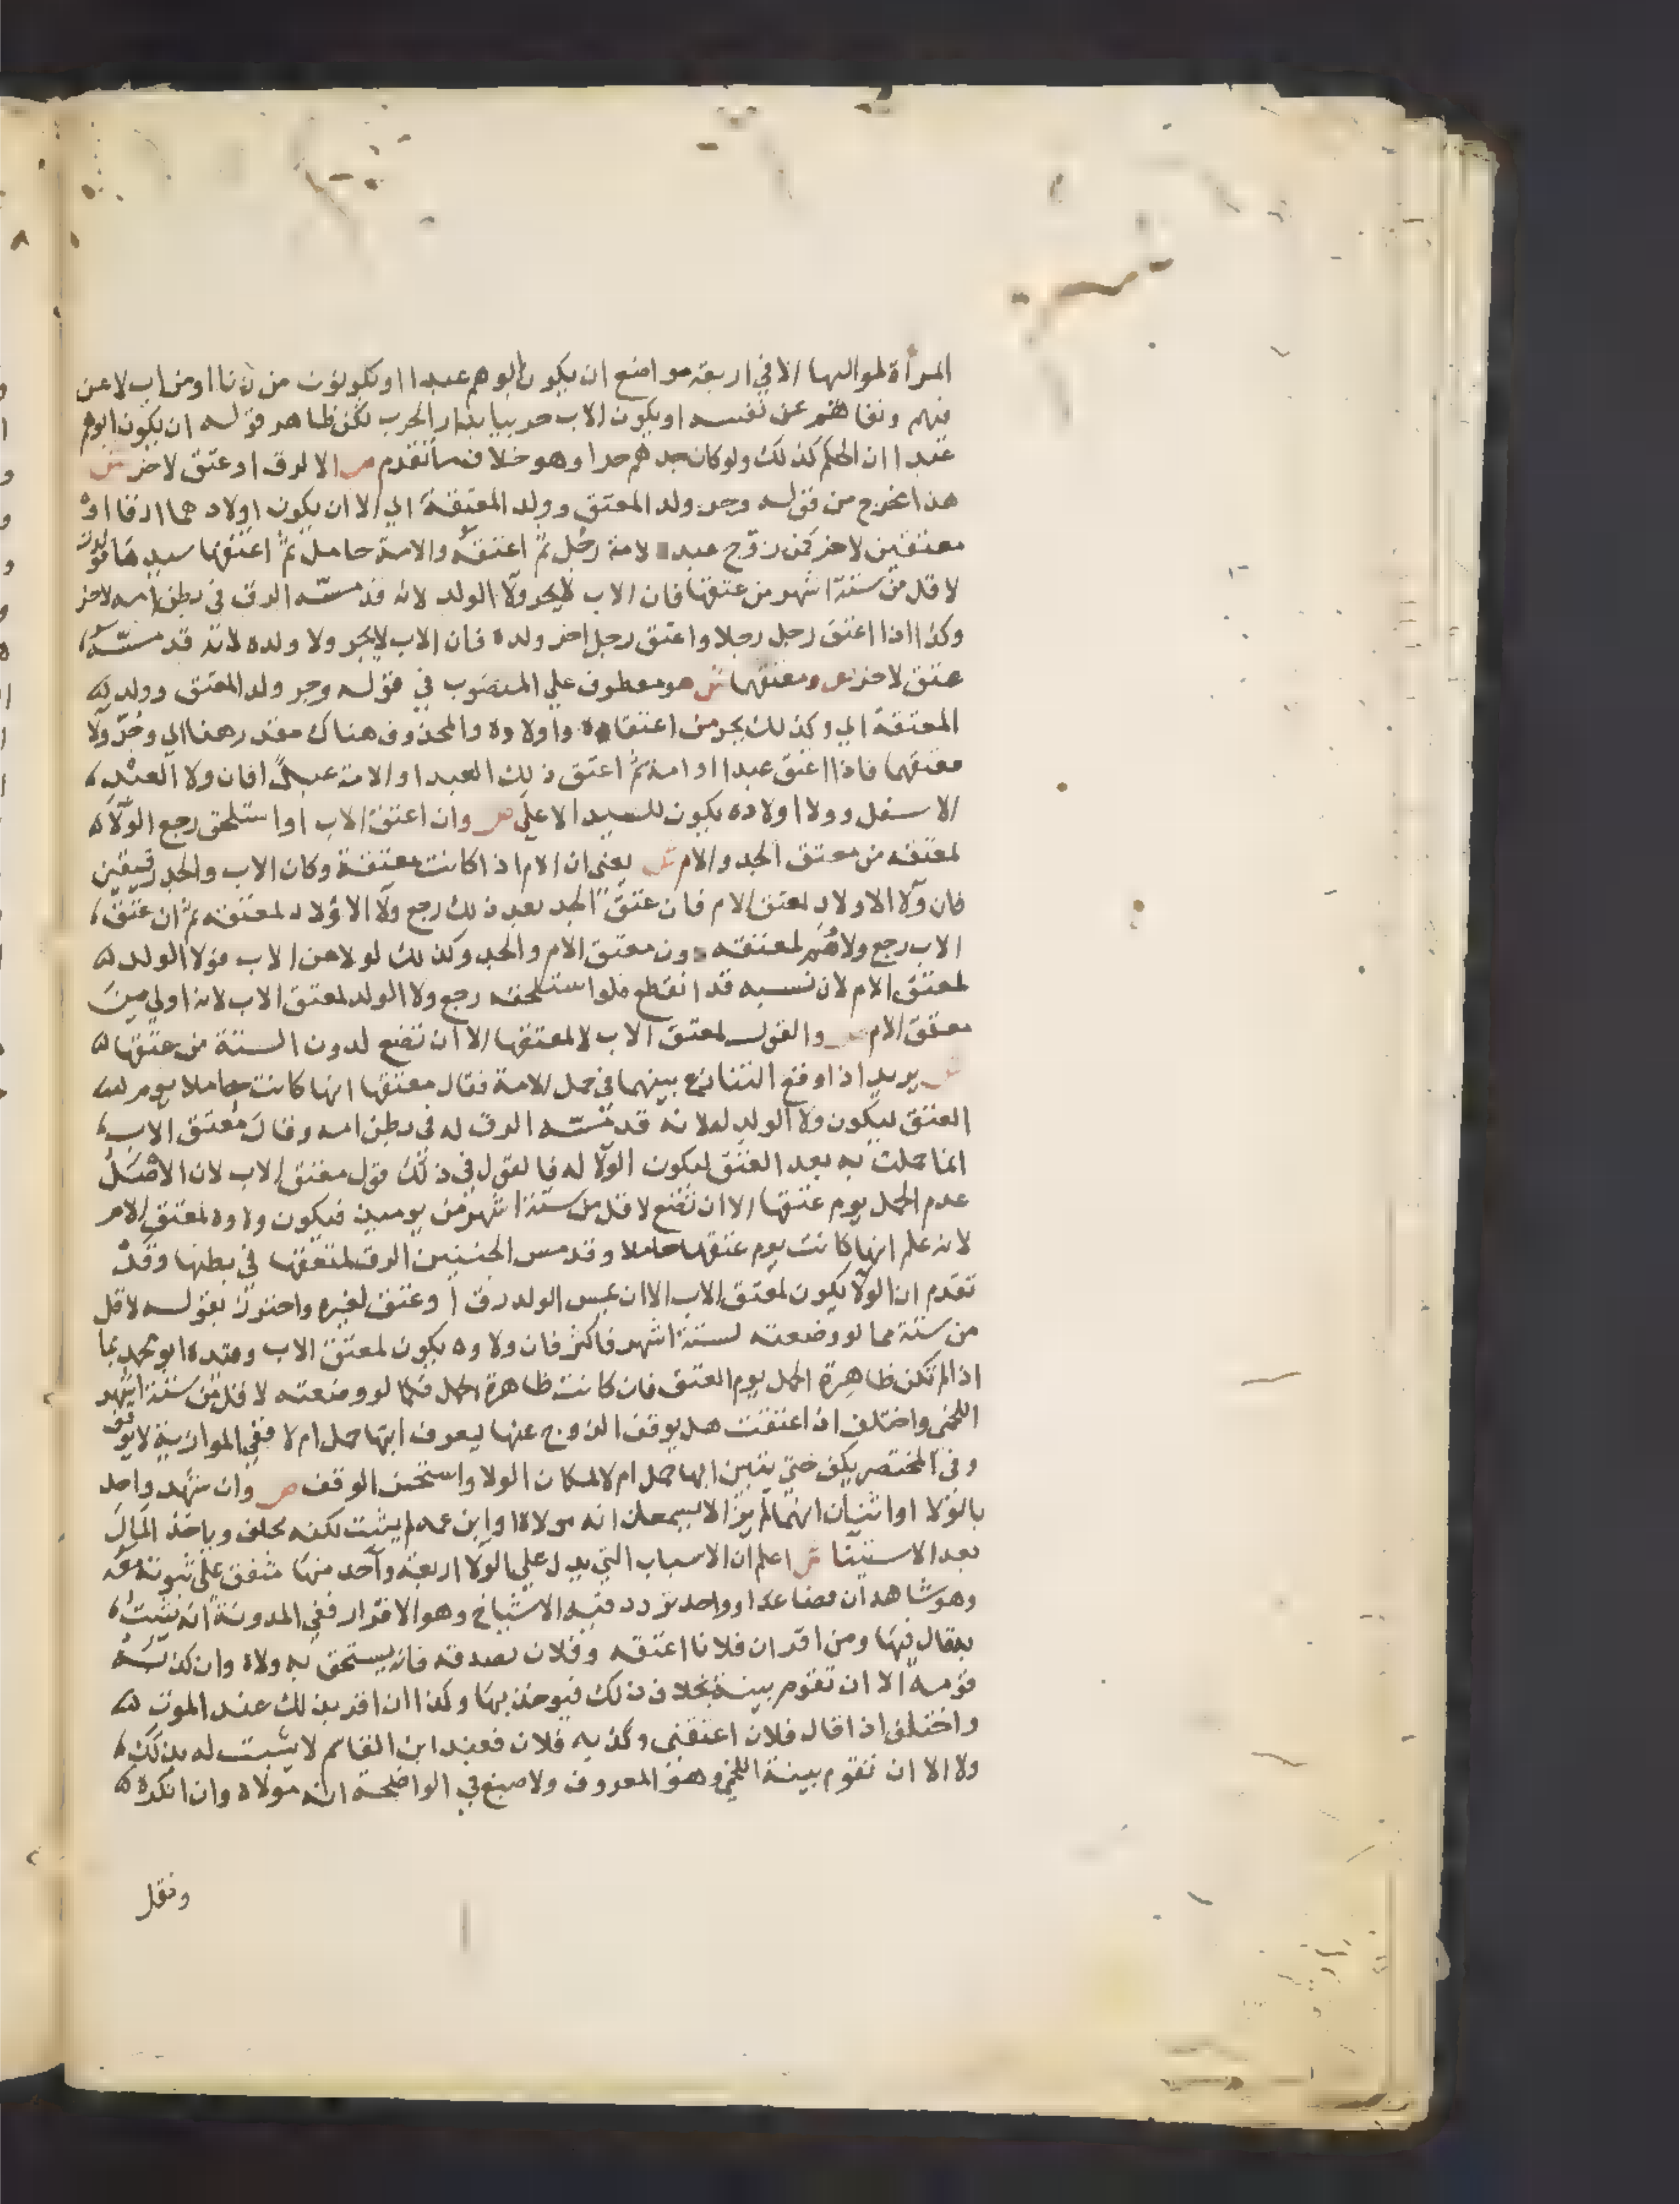 المرأة لمواليها الا في اربعة مواضع ان يكون ابوهم عبدا او يكونون من زنا او من اب لاعن
فيهم ونفاهم عن نفسه او يكون الاب حربيا بدار الحرب لكن ظاهر قوله ان يكون ابوهم
عبدا ان الحكم كذلك ولو كان جدهم حرا وهو خلاف ما تقدم ص الا لرق او عتق لاخر ش
هذا مخرج من قوله وجر ولد المعتق وولد المعتقة اي الا ان يكون اولادهما ارقا او
معتقين لاخر كمن زوج عبده لامة رجل ثم اعتقه والامة حامل ثم اعتقها سيدها فولدت
لاقل من ستة اشهر من عتقها فان الاب لا يجر ولا الولد لانه قد مسه الرق في بطن امه لاخر
وكذا اذا اعتق رجل رجلا واعتق رجل اخر ولده فان الاب لا يجر ولا ولده لانه قد مسه
عتق لاخر ص ومعتقهما ش هو معطوف علي المنصوب في قوله وجر ولد المعتق وولد
المعتقة اي وكذلك يجر من اعتقاه واولاده والمحذوف هناك مقدر هنا اي وجر ولا
معتقهما فاذا اعتق عبدا او امة ثم اعتق ذلك العبد او الامة عبدا فان ولا العبد
الاسفل وولا اولاده يكون للسيد الاعلي ص وان اعتق الاب او استلحق رجع الولا
لمعتقه من معتق الجد والام ش يعني ان الام اذا كانت معتقة وكان الاب والجد رقيقين
فان ولا الاولاد لمعتق الام فان عتق الجد بعد ذلك رجع ولا الاولاد لمعتقه ثم ان عتق
الاب رجع ولاهم لمعتقه دون معتق الام والجد وكذلك لو لاعن الاب فولا الولد
لمعتق الام لان نسبه قد انقطع فلو استلحقه رجع ولا الولد لمعتق الاب لانه اولي من
معتق الام ص والقول لمعتق الاب لا لمعتقها الا ان تضع لدون الستة من عتقها
ش يريد اذا وقع التنازع بينهما في حمل الامة فقال معتقها انها كانت حاملا يوم
العتق ليكون ولا الولد له لانه قد مسه الرق له في بطن امه وقال معتق الاب
انما حملت به بعد العتق ليكون الولا له فالقول في ذلك قول معتق الاب لان الاصل
عدم الحمل يوم عتقها الا ان تضع لاقل من ستة اشهر من يوميذ فيكون ولاوه لمعتق الام
لانه علم انها كانت يوم عتقها حاملا وقد مس الجنين الرق لمعتقها في بطنها وقد
تقدم ان الولا يكون لمعتق الاب الا ان يمس الولد رق او عتق لغيره واحترز بقوله لاقل
من ستة مما لو وضعته لستة اشهر فاكثر فان ولاوه يكون لمعتق الاب وقيده ابو محمد بما
اذا لم تكن ظاهرة الحمل يوم العتق فان كانت ظاهرة الحمل فكما لو وضعته لاقل من ستة اشهر
اللخمي واختلف اذا اعتقت هل يوقف الزوج عنها ليعرف ابها حمل ام لا ففي الموازية لا يوقف
وفي المختصر يكف حتي يتبين ابها حمل ام لا لمكان الولا واستحسن الوقف ص وان شهد واحد
بالولا او اثنان انهما لم يزالا يسمعان انه مولاه او ابن عمه لم يثبت لكنه يحلف وياخذ المال
بعد الاستينا ش اعلم ان الاسباب التي يدل علي الولا اربعة واحد منها متفق علي ثبوته معه
وهو شاهدان فصاعدا وواحد تردد فيه الاشياخ وهو الاقرار ففي المدونة انه يثبت
يقال فيها ومن اقر ان فلانا اعتقه وفلان يصدقه فانه يستحق به ولاه وان كذبه
قومه الا ان تقوم بينة بخلاف ذلك فيوخذ بها وكذا ان اقر بذلك عند الموت
واختلف اذا قال فلان اعتقني وكذبه فلان فعند ابن القاسم لا يثبت له بذلك
ولا الا ان تقوم بينة اللخمي وهو المعروف ولاصبغ في الواضحة انه مولاه وان انكره
ونقل